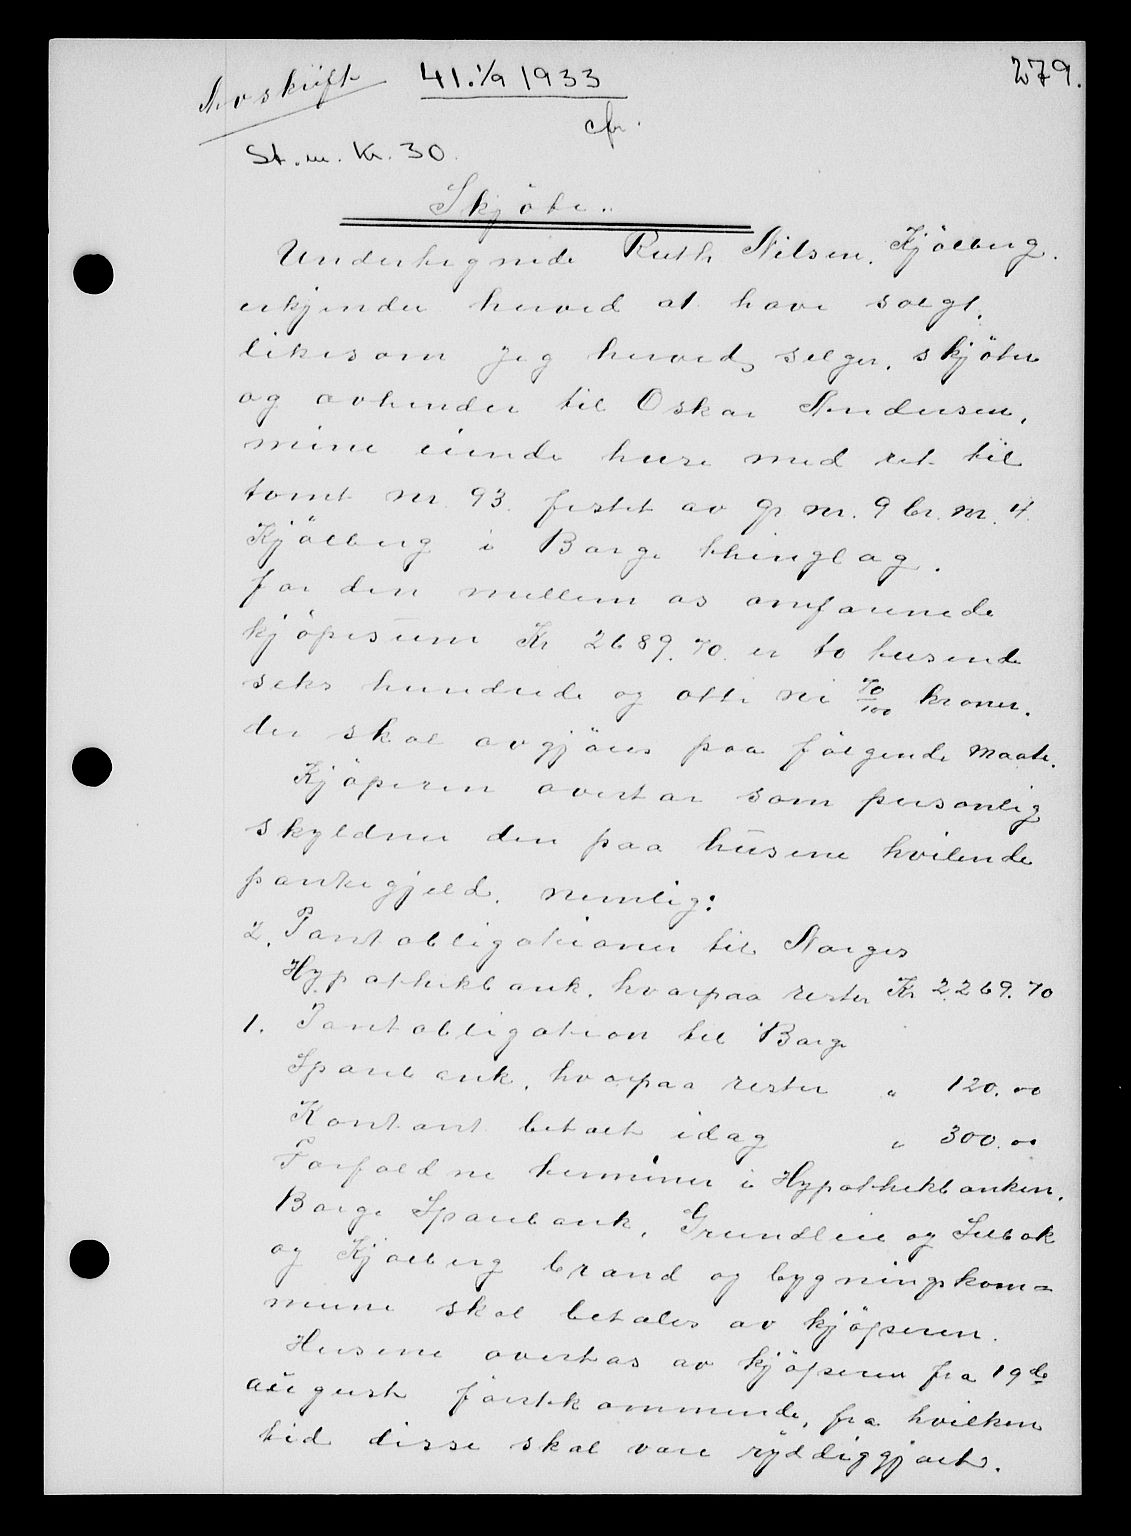 279.
Avskrift 41. 1/9 1933
cfr.
St.m. Kr. 30.
Skjöte.
Undertegnede Ruth Nilsen, Kjölberg.
erkjender herved at have solgt,
likesom jeg herved selger, skjöter
og avhender til Oskar Andersen,
mine eiende huse med ret til
tomt nr. 93. festet av gr. nr. 9 br. nr. 4.
Kjölberg i Borge thinglag.
for den mellem os omforenede
kjöpesum Kr 2689.70. er to tusende
seks hundrede og otti ni 70/100 kroner.
der skal avgjöres paa fölgende maate.
Kjöperen overtar som personlig
skyldner den paa husene hvilende
pantegjeld, nemlig:
2. Pantobligationer til Norges
Hypothekbank, hvorpaa rester Kr 2269.70
1. Pantobligation til Borge
Sparebank, hvorpaa rester " 120.00
Kontant betalt idag " 300.00
Forfaldne terminer i Hypothekbanken,
Borge Sparebank, Grundleie og Selbak
og Kjölberg brand og bygningskom=
mune skal betales av kjöperen.
Husene overtas av kjöperen fra 19de
august förstkommende, fra hvilken
tid disse skal være ryddiggjort.